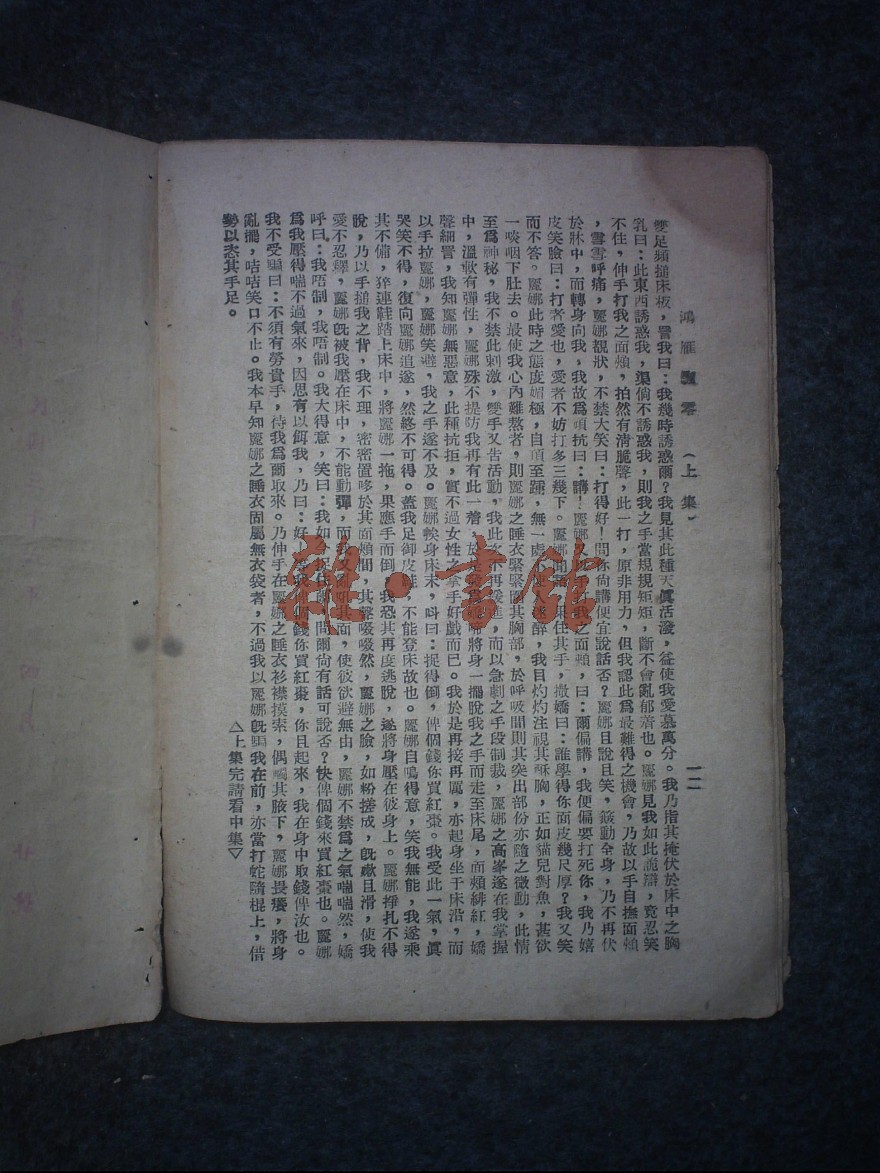 鴻雁飄零（上集）
一二
雙足頻搥床板，詈我曰：我幾時誘惑爾？我見其此種天眞活潑，益使我愛慕萬分。我乃指其掩伏於床中之胸
乳曰：此東西誘惑我，渠倘不誘惑我，則我之手當規規矩矩，斷不會亂郁着也。麗娜見我如此詭辯，竟忍笑
不住，伸手打我之面頰，拍然有淸脆聲，此一打，原非用力，但我認此爲最難得之機會，乃故以手自撫面頰
，雪雪呼痛，麗娜覩狀，不禁大笑曰：打得好！問你尙講便宜說話否？麗娜且說且笑，籨動全身，乃不再伏
於牀中，而轉身向我，我故爲頑抗曰：講！麗娜以手打我之面頰，曰：爾偏講，我便偏要打死你，我乃嬉
皮笑臉曰：打者愛也，愛者不妨打多三幾下。麗娜住其手，撒嬌曰：誰學得你面皮幾尺厚？我又笑
而不答。麗娜此時之態度媚極，自頂至踵，無一處不使醉，我目灼灼注視其酥胸，正如猫兒對魚，甚欲
一啖咽下肚去。最使我心內難熬者，則麗娜之睡衣緊緊圍其胸部，於呼吸間則其突出部份亦隨之微動，此情
至爲神秘，我不禁此刺激，雙手又告活動，我此次不再緩進，而以急劇之手段制裁，麗娜之高峯遂在我掌握
中，溫軟有彈性，麗娜殊不提防我再有此一着，於將身一擺脫我之手而走至床尾，面頰緋紅，嬌
聲細詈，我知麗娜無惡意，此種抗拒，實不過女性之拿手好戲而已。我於是再接再厲，亦起身坐于床沿，而
以手拉麗娜，麗娜笑避，我之手遂不及。麗娜軼身床末，呌曰：捉得倒，俾個錢你買紅棗。我受此一氣，眞
哭笑不得，復向麗娜追逐，然終不可得。蓋我足御皮鞋，不能登床故也。麗娜自鳴得意，笑我無能，我遂乘
其不備，猝連鞋踏上床中，將麗娜一拖，果應手而倒，我恐其再度逃脫，遂將身壓在彼身上。麗娜掙扎不得
脫，乃以手搥我之背，我不理，密密置哆於其面頰間，其聲啜啜然，麗娜之臉，如粉搓成，旣嫩且滑，使我
愛不忍釋，麗娜旣被我壓在床中，不能動彈，而我又其面，使彼欲避無由，麗娜不禁爲之氣喘喘然，嬌
呼曰：我唔制，我唔制。我大得意，笑曰：我如捉住問爾尙有話可說否？快俾個錢來買紅棗也。麗娜
爲我壓得喘不過氣來，因思有以餌我，乃曰：好個錢你買紅棗，你且起來，我在身中取錢俾汝也。
我不受騙曰：不須有勞貴手，待我爲爾取來。乃伸手在麗娜之睡衣衫襟摸索，偶觸其腋下，麗娜畏癢，將身
亂擺，咭咭笑口不止。我本早知麗娜之睡衣固屬無衣袋者，不過我以麗娜旣騙我在前，亦當打蛇隨棍上，借
勢以恣其手足。
△上集完請看中集▽
雜·書館